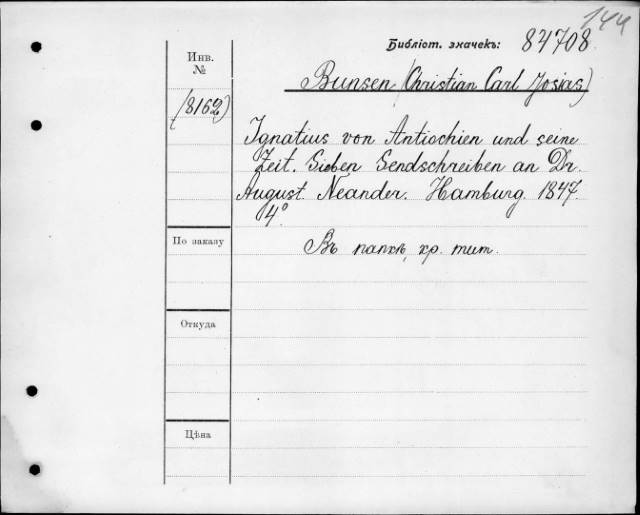 144
Библіот. значекъ: 84708
Инв.
№
Bunsen (Christian Carl Josias)
(8162)
Ignatius von Antiochien und seine
Zeit. Sieben Sendschreiben an Dr.
August. Neander. Hamburg. 1847.
4°
По заказу
Въ папкѣ, хр. тит.
Откуда
Цѣна